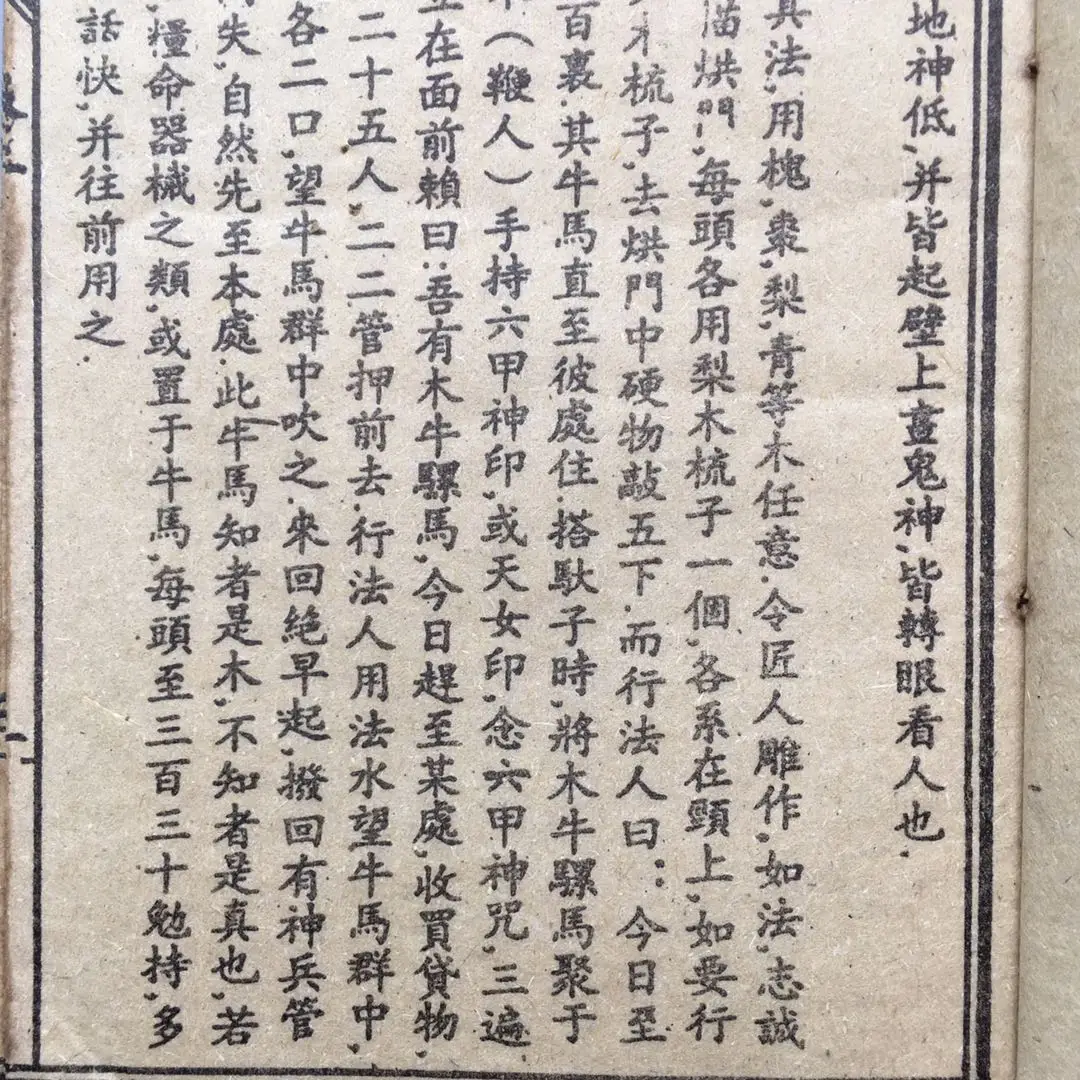 地神低、并皆起壁上畫鬼神、皆轉眼看人也.
其法、用槐、棗、梨、青等木任意.令匠人雕作、如法、志誠
烘門、每頭各用梨木梳子一個、各系在頸上、如要行
木梳子、去烘門中硬物敲五下.而行法人曰：今日至
百裏.其牛馬直至彼處住.搭馱子時、將木牛騾馬聚于
（鞭人）手持六甲神印、或天女印、念六甲神咒、三遍
在面前賴曰.吾有木牛騾馬、今日趕至某處、收買貸物、
二十五人、二二管押前去.行法人用法水望牛馬群中、
各二口、望牛馬群中吹之.來回絕早起、撥回有神兵管
失、自然先至本處.此牛馬知者是木、不知者是真也、若
糧命器械之類、或置于牛馬、每頭至三百三十勉持、多
話快、并往前用之.